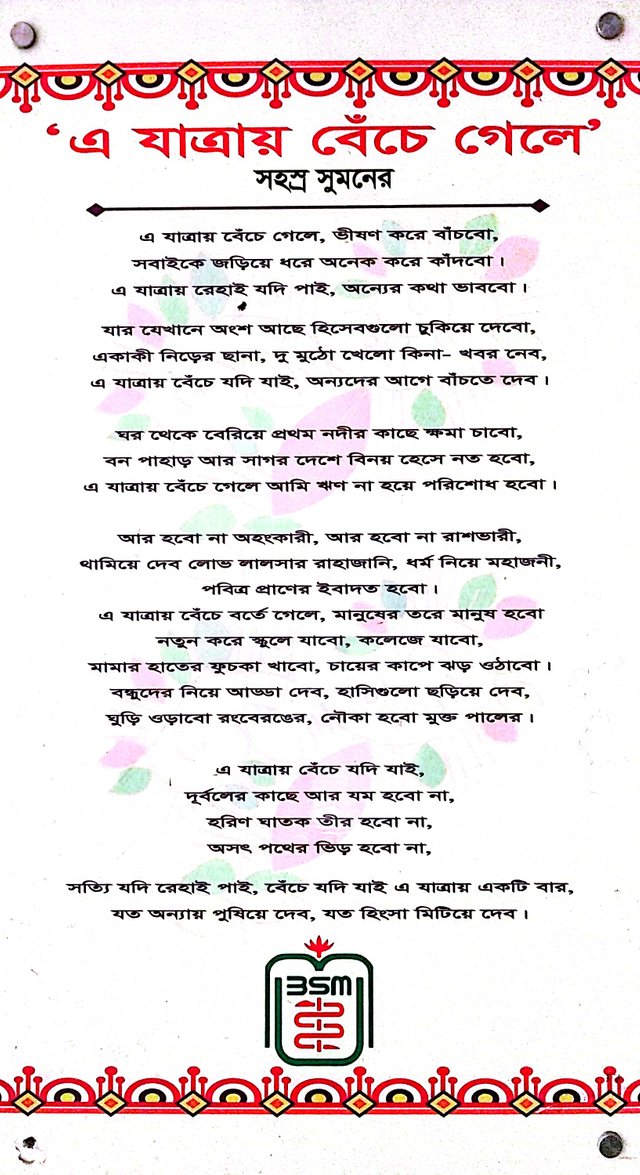 ‘এ যাত্রায় বেঁচে গেলে’
সহস্র সুমনের
এ যাত্রায় বেঁচে গেলে, ভীষণ করে বাঁচবো,
সবাইকে জড়িয়ে ধরে অনেক করে কাঁদবো।
এ যাত্রায় রেহাই যদি পাই, অন্যের কথা ভাববো।
যার যেখানে অংশ আছে হিসেবগুলো চুকিয়ে দেবো,
একাকী নিড়ের ছানা, দু মুঠো খেলো কিনা- খবর নেব,
এ যাত্রায় বেঁচে যদি যাই, অন্যদের আগে বাঁচতে দেব।
ঘর থেকে বেরিয়ে প্রথম নদীর কাছে ক্ষমা চাবো,
বন পাহাড় আর সাগর দেশে বিনয় হেসে নত হবো,
এ যাত্রায় বেঁচে গেলে আমি ঋণ না হয়ে পরিশোধ হবো।
আর হবো না অহংকারী, আর হবো না রাশভারী,
থামিয়ে দেব লোভ লালসার রাহাজানি, ধর্ম নিয়ে মহাজনী,
পবিত্র প্রাণের ইবাদত হবো।
এ যাত্রায় বেঁচে বর্তে গেলে, মানুষের তরে মানুষ হবো
নতুন করে স্কুলে যাবো, কলেজে যাবো,
মামার হাতের ফুচকা খাবো, চায়ের কাপে ঝড় ওঠাবো।
বন্ধুদের নিয়ে আড্ডা দেব, হাসিগুলো ছড়িয়ে দেব,
ঘুড়ি ওড়াবো রংবেরঙের, নৌকা হবো মুক্ত পালের।
এ যাত্রায় বেঁচে যদি যাই,
দূর্বলের কাছে আর যম হবো না,
হরিণ ঘাতক তীর হবো না,
অসৎ পথের ভিড় হবো না,
সত্যি যদি রেহাই পাই, বেঁচে যদি যাই এ যাত্রায় একটি বার,
যত অন্যায় পুষিয়ে দেব, যত হিংসা মিটিয়ে দেব।
BSM